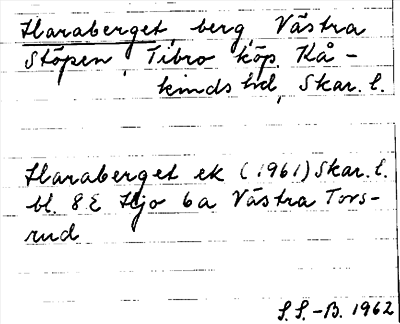 Haraberget, berg, Västra
Stöpen, Tibro köp. Kå-
kinds hd, Skar. l.
Haraberget ek (1961) Skar. l.
bl. 8E Hjo 6a Västra Tors-
rud
S.S.-B. 1962